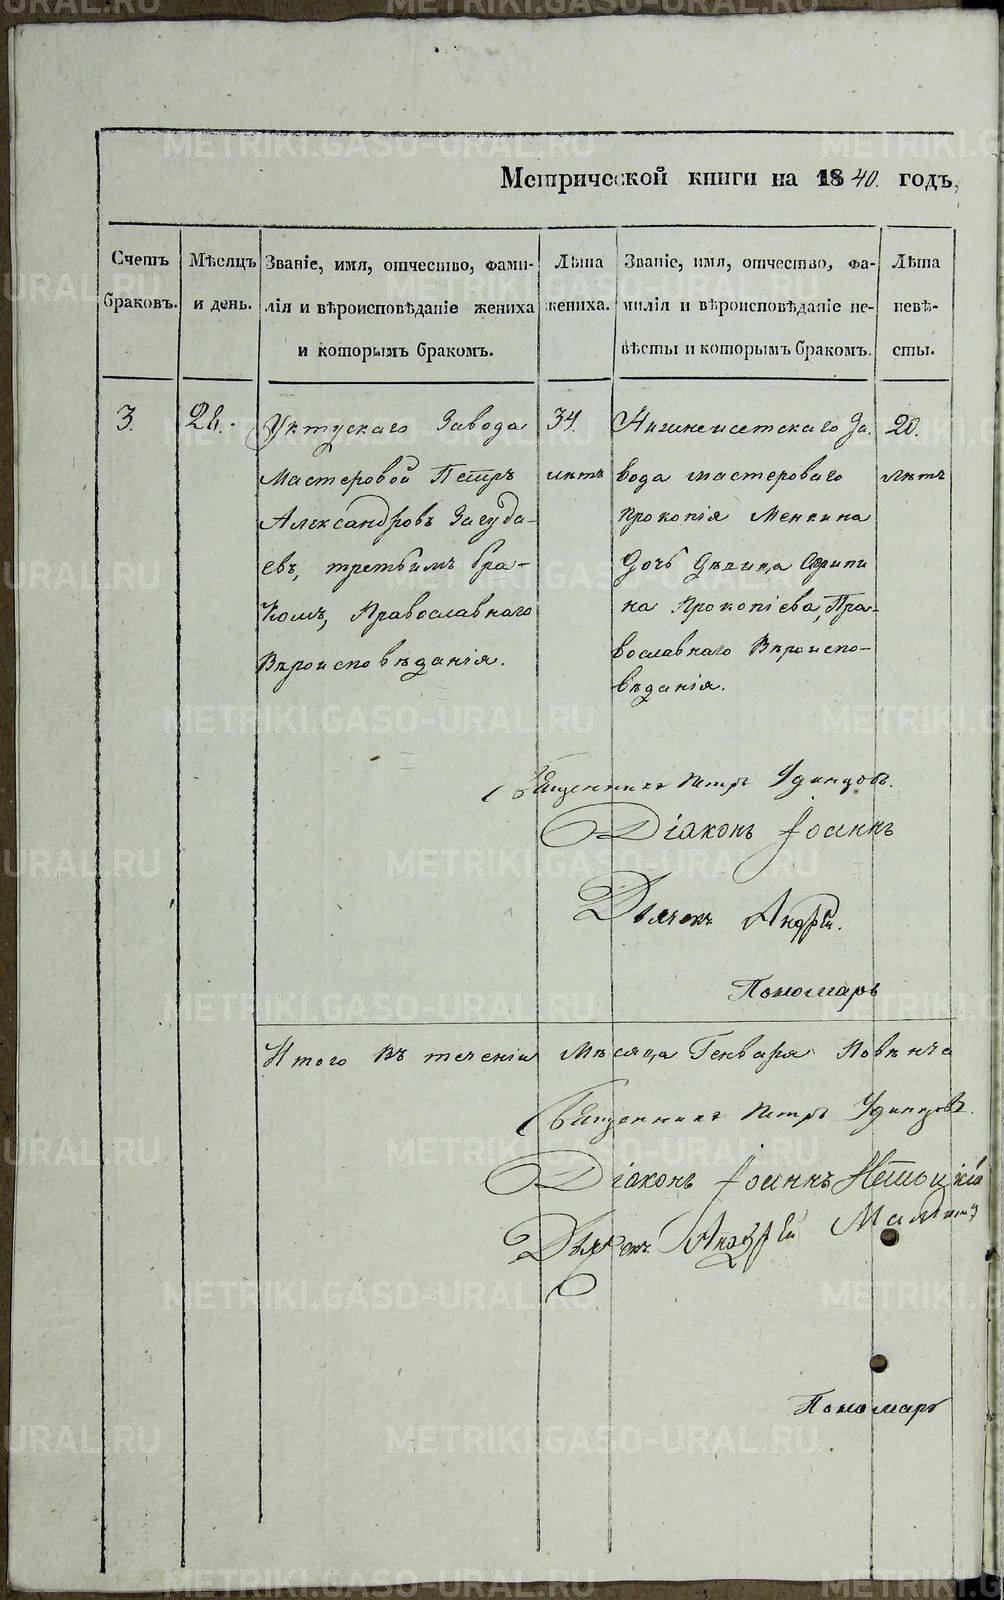 Метрической книги на 1840. годъ,
Счетъ браковъ.
Мѣсяцъ и день.
Званіе, имя, отчество, фами-
лія и вѣроисповѣданіе жениха
и которымъ бракомъ.
Лѣта
жениха.
Званіе, имя, отчество, фа-
милія и вѣроисповѣданіе не-
вѣсты и которымъ бракомъ.
Лѣта
невѣ-
сты.
3.
28.
Уктускаго Завода
Мастеровой Петръ
Александровъ Загуда-
евъ, третьимъ бра-
комъ, Православнаго
Вѣроисповѣданія.
34.
лѣтъ
Нижнеисетскаго За-
вода мастероваго
Прокопія Менкина
Дочь Дѣвица
на Прокопіева, Пра-
вославнаго Вѣроиспо-
вѣданія.
20.
Лѣтъ
Священникъ Петръ Удинцовъ.
Діаконъ Іоаннъ
Дьячекъ Андрей.
Пономарь
Итого въ теченіи Мѣсяца Генваря Повѣнча
Священникъ Петръ Удинцовъ.
Діаконъ Іоаннъ
Дьячекъ Андрей
Пономарь
METRIKI.GASO-URAL.RU